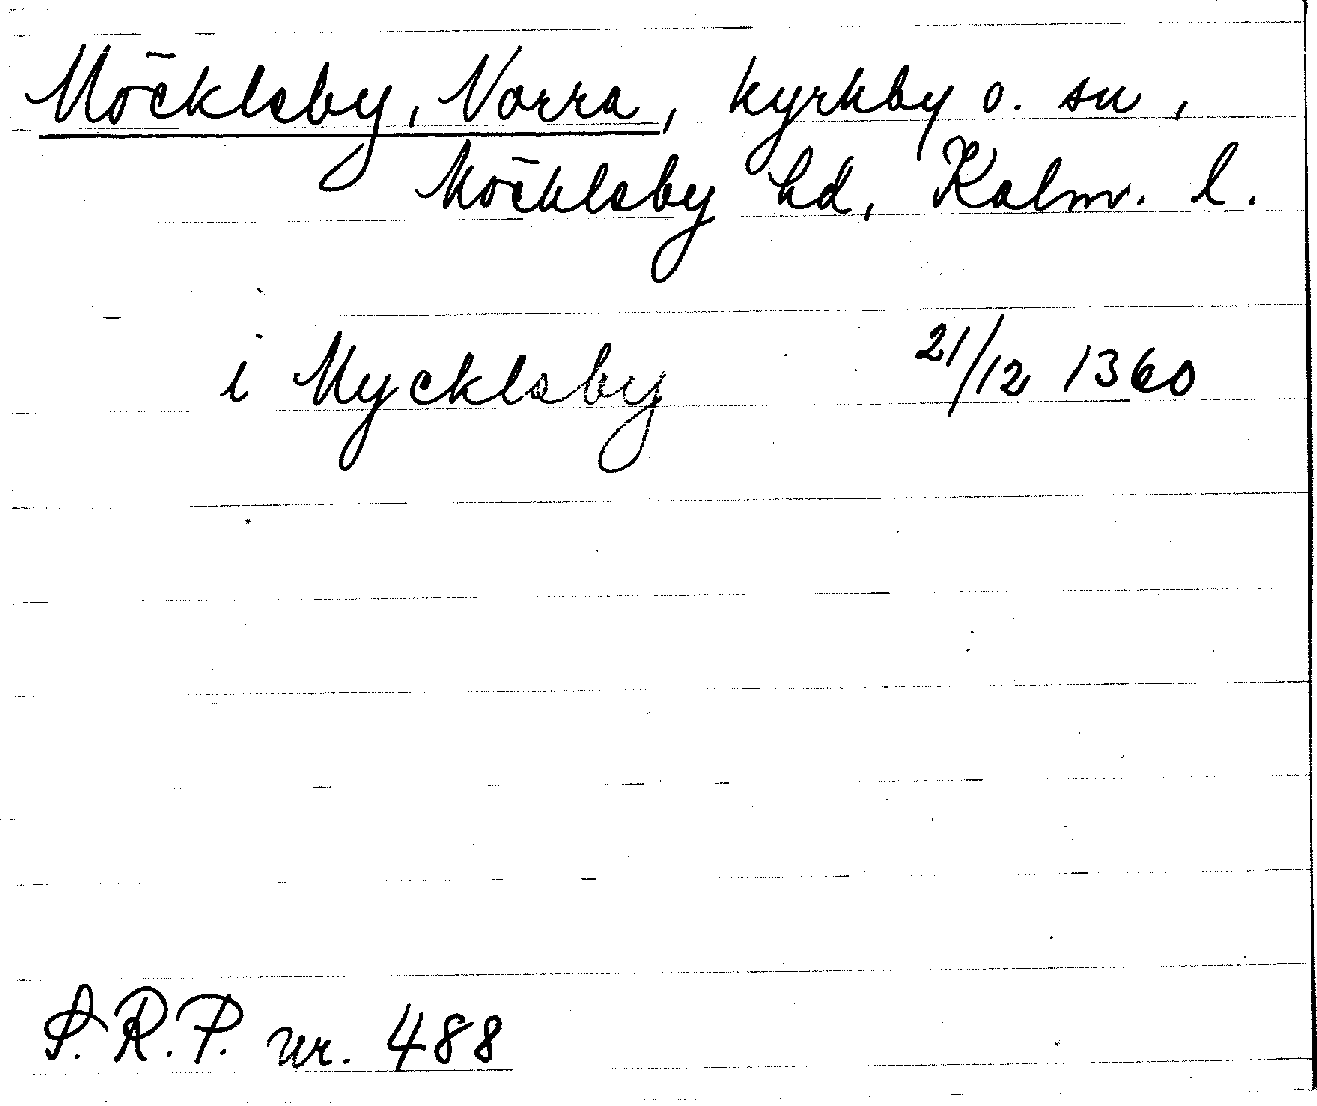 Möckleby, Norra, kyrkby o. sn,
Möckleby hd, Kalm. l.
i Mycklaby 21/12 1360
S.R.P. nr. 488